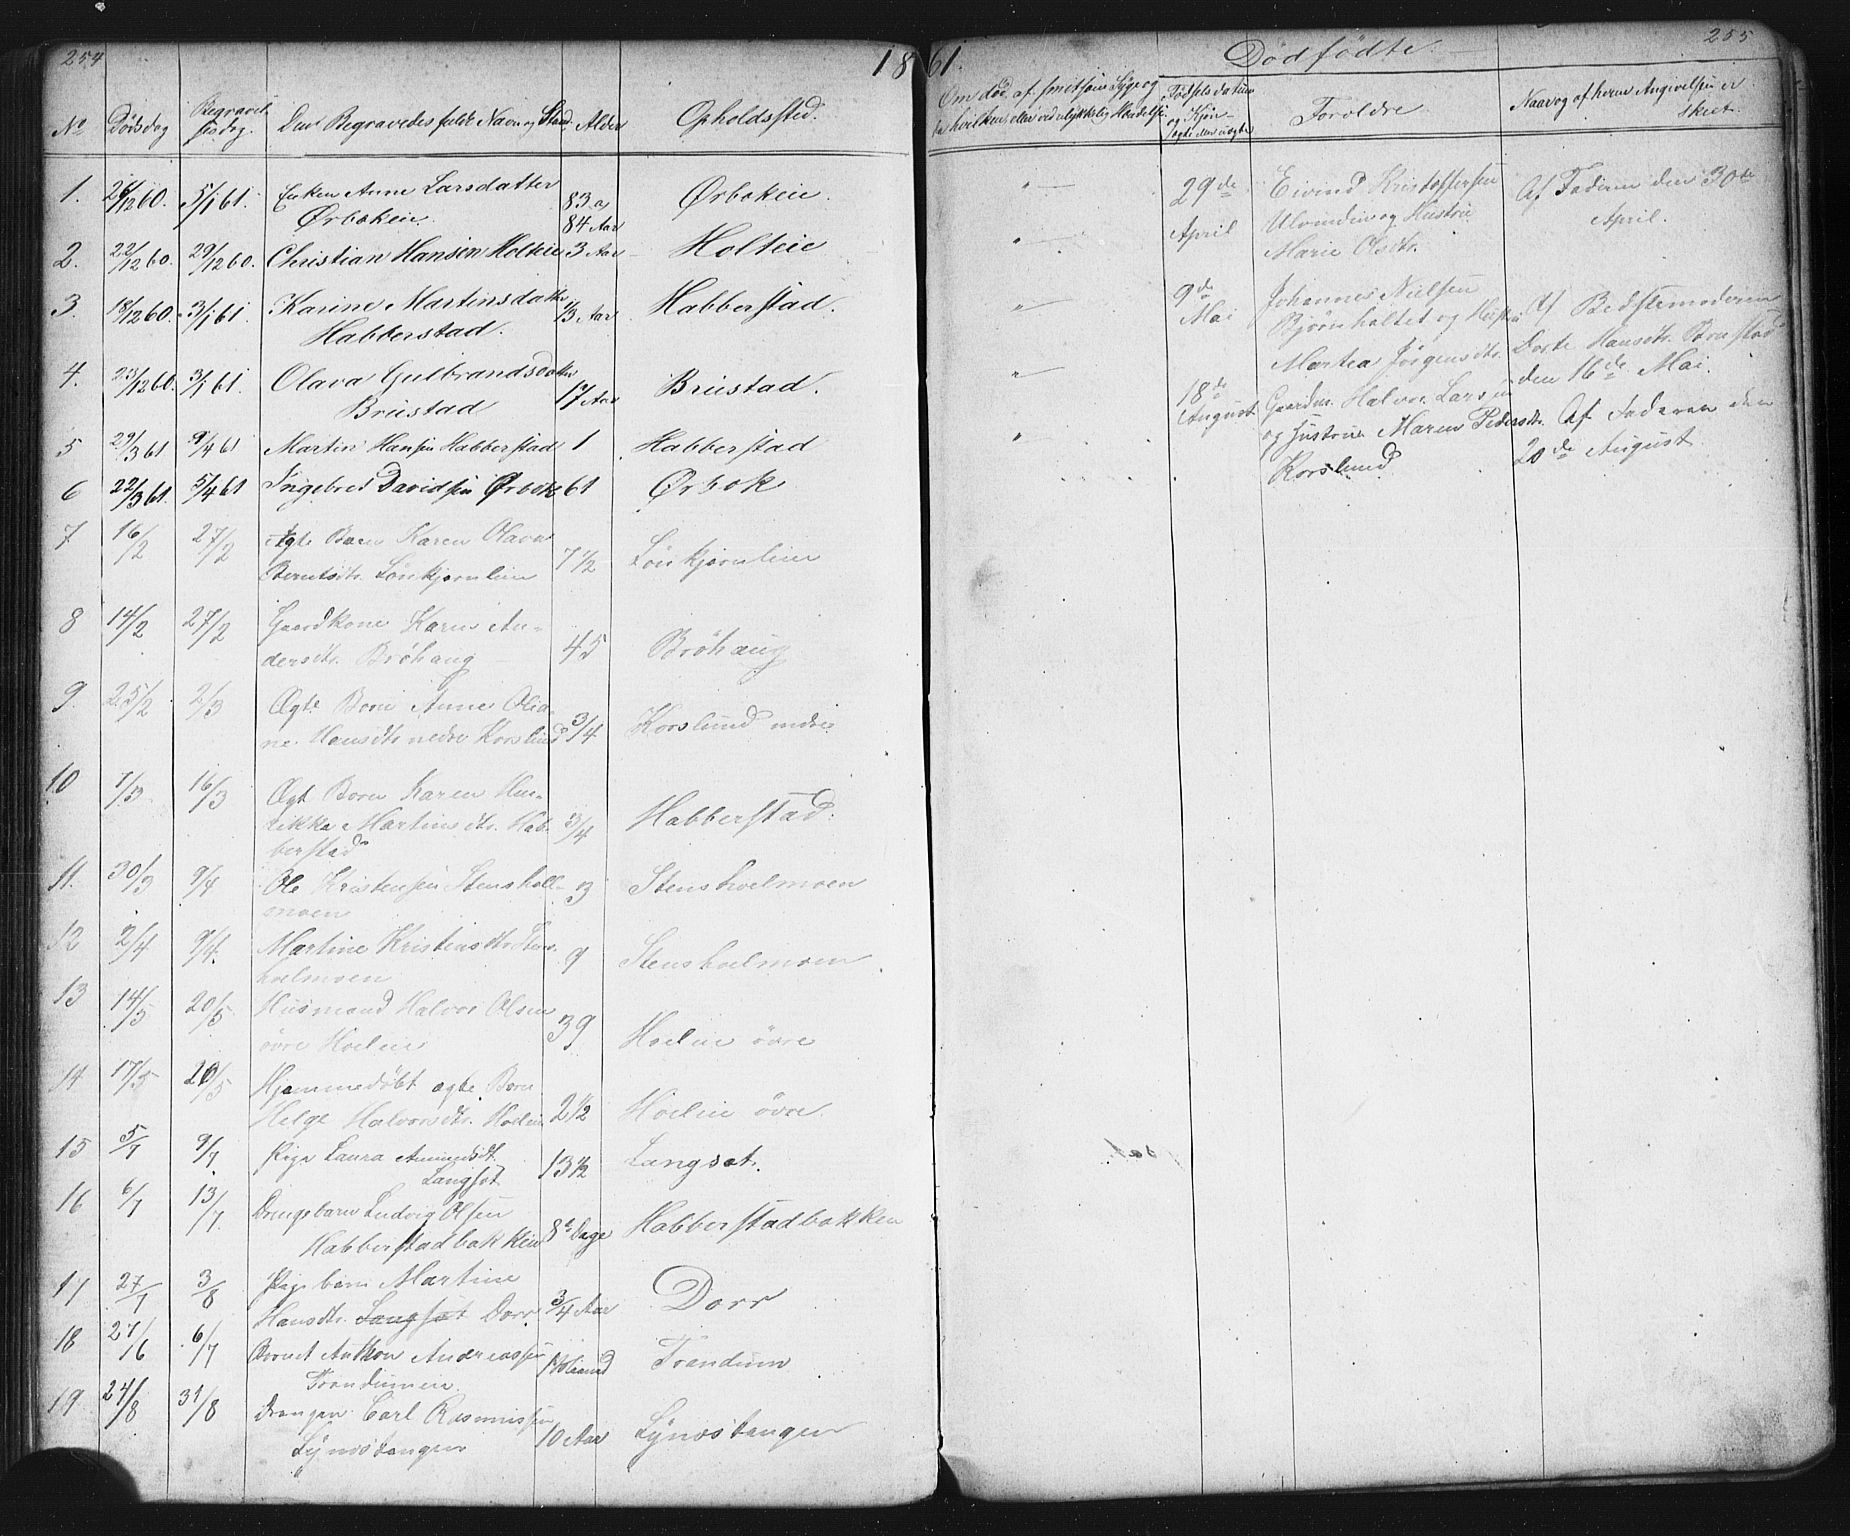 254
1861.
255
Dödfödte.
No
Dødsdag
Begravelsesdag.
Den Begravedes fulde Navn og Stand
Alder
Opholdssted.
Om død af smitsom Syge og
hvilken, eller ved ulykkelig Hændelse.
Fødselsdatum
og Kjön
ægte eller uægte
Forældre
Naar og af hvem Angivelsen er
skeet.
1. 26/12 60. 5/1 61. Enken Anne Larsdatter 83 a Ørbokeie.
Ørbokeie. 84 Aar
2. 22/12 60. 29/12 60. Christian Hansen Holteie 3 Aar Holteie
3. 18/12 60. 3/1 61. Karine Martinsdatter 1/3 Aar Habberstad.
Habberstad.
4. 23/12 60. 3/1 61. Olava Gulbrandsdatter 17 Aar Brustad.
Brustad
5 29/3 61 9/4 61 Martin Hansen Habberstad 1 Habberstad
6 22/3 61. 5/4 61 Ingebret Davidsen Ørbok 61 Ørbok
7 16/2 27/2 Ægte Barn Karen Olava
Berntsdtr. Lönkjernleien 7 1/2 Lönkjernleien
8 14/2 27/2 Gaardkone Karen An-
dersdtr. Bröhaug 45 Bröhaug
9. 25/2 2/3 Ægte Barn Anne Olia-
ne Hansdtr nedre Korslund 3/4 Korslund nedre
10 7/3. 16/3 Ægt Barn Karen Hen-
rikka Martinsdtr. Hab- 3/4 Habberstad.
berstad
11. 30/3 9/4 Ole Kristensen Stenshoel- 3 Stenshoelmoen
moen
12 2/4 9/4. Martine Kristensdtr Stens- 9 Stenshoelmoen
hoelmoen
13 14/5 20/5 Husmand Halvor Olsen 39 Hoeleie övre
övre Hoeleie
14 17/5 20/5 Hjemmedöbt ægte Barn
Helge Halvorsdtr. Hoeleie 2 1/2 Hoeleie övre
15 5/7 9/7 Pige Laura Amundsdt. 13 1/2 Langset.
Langset
16 6/7 13/7. Drengebarn Ludvig Olsen
Habberstadbakken 8 Dage Habberstadbakken
17 27/7 3/8 Pigebarn Martine
Hansdtr. Langset Dorr. 3/4 Aar Dorr
18 27/6 6/7 Barnet Anthon Andreassen Trandum
Trandumeie.
19 24/8 31/8 Drengen Carl Rasmussen
Lynæstangen 10 Aar Lynæstangen
29de
April
Eivind Kristoffersen
Ulvmdeie og Hustru
Marie Olsdtr.
Af Faderen den 30te
April.
9de
Mai
Johannes Nielsen
Bjørnholtet og Hustru
Martea Jörgensdtr.
Af Bedstemoderen
Dorte Hansdtr. Brustad
den 16de Mai.
18de
August
Gaardm. Halvor Larsen
og Hustrue Maren Pedersdtr.
Korslund
Af Faderen den
20de August